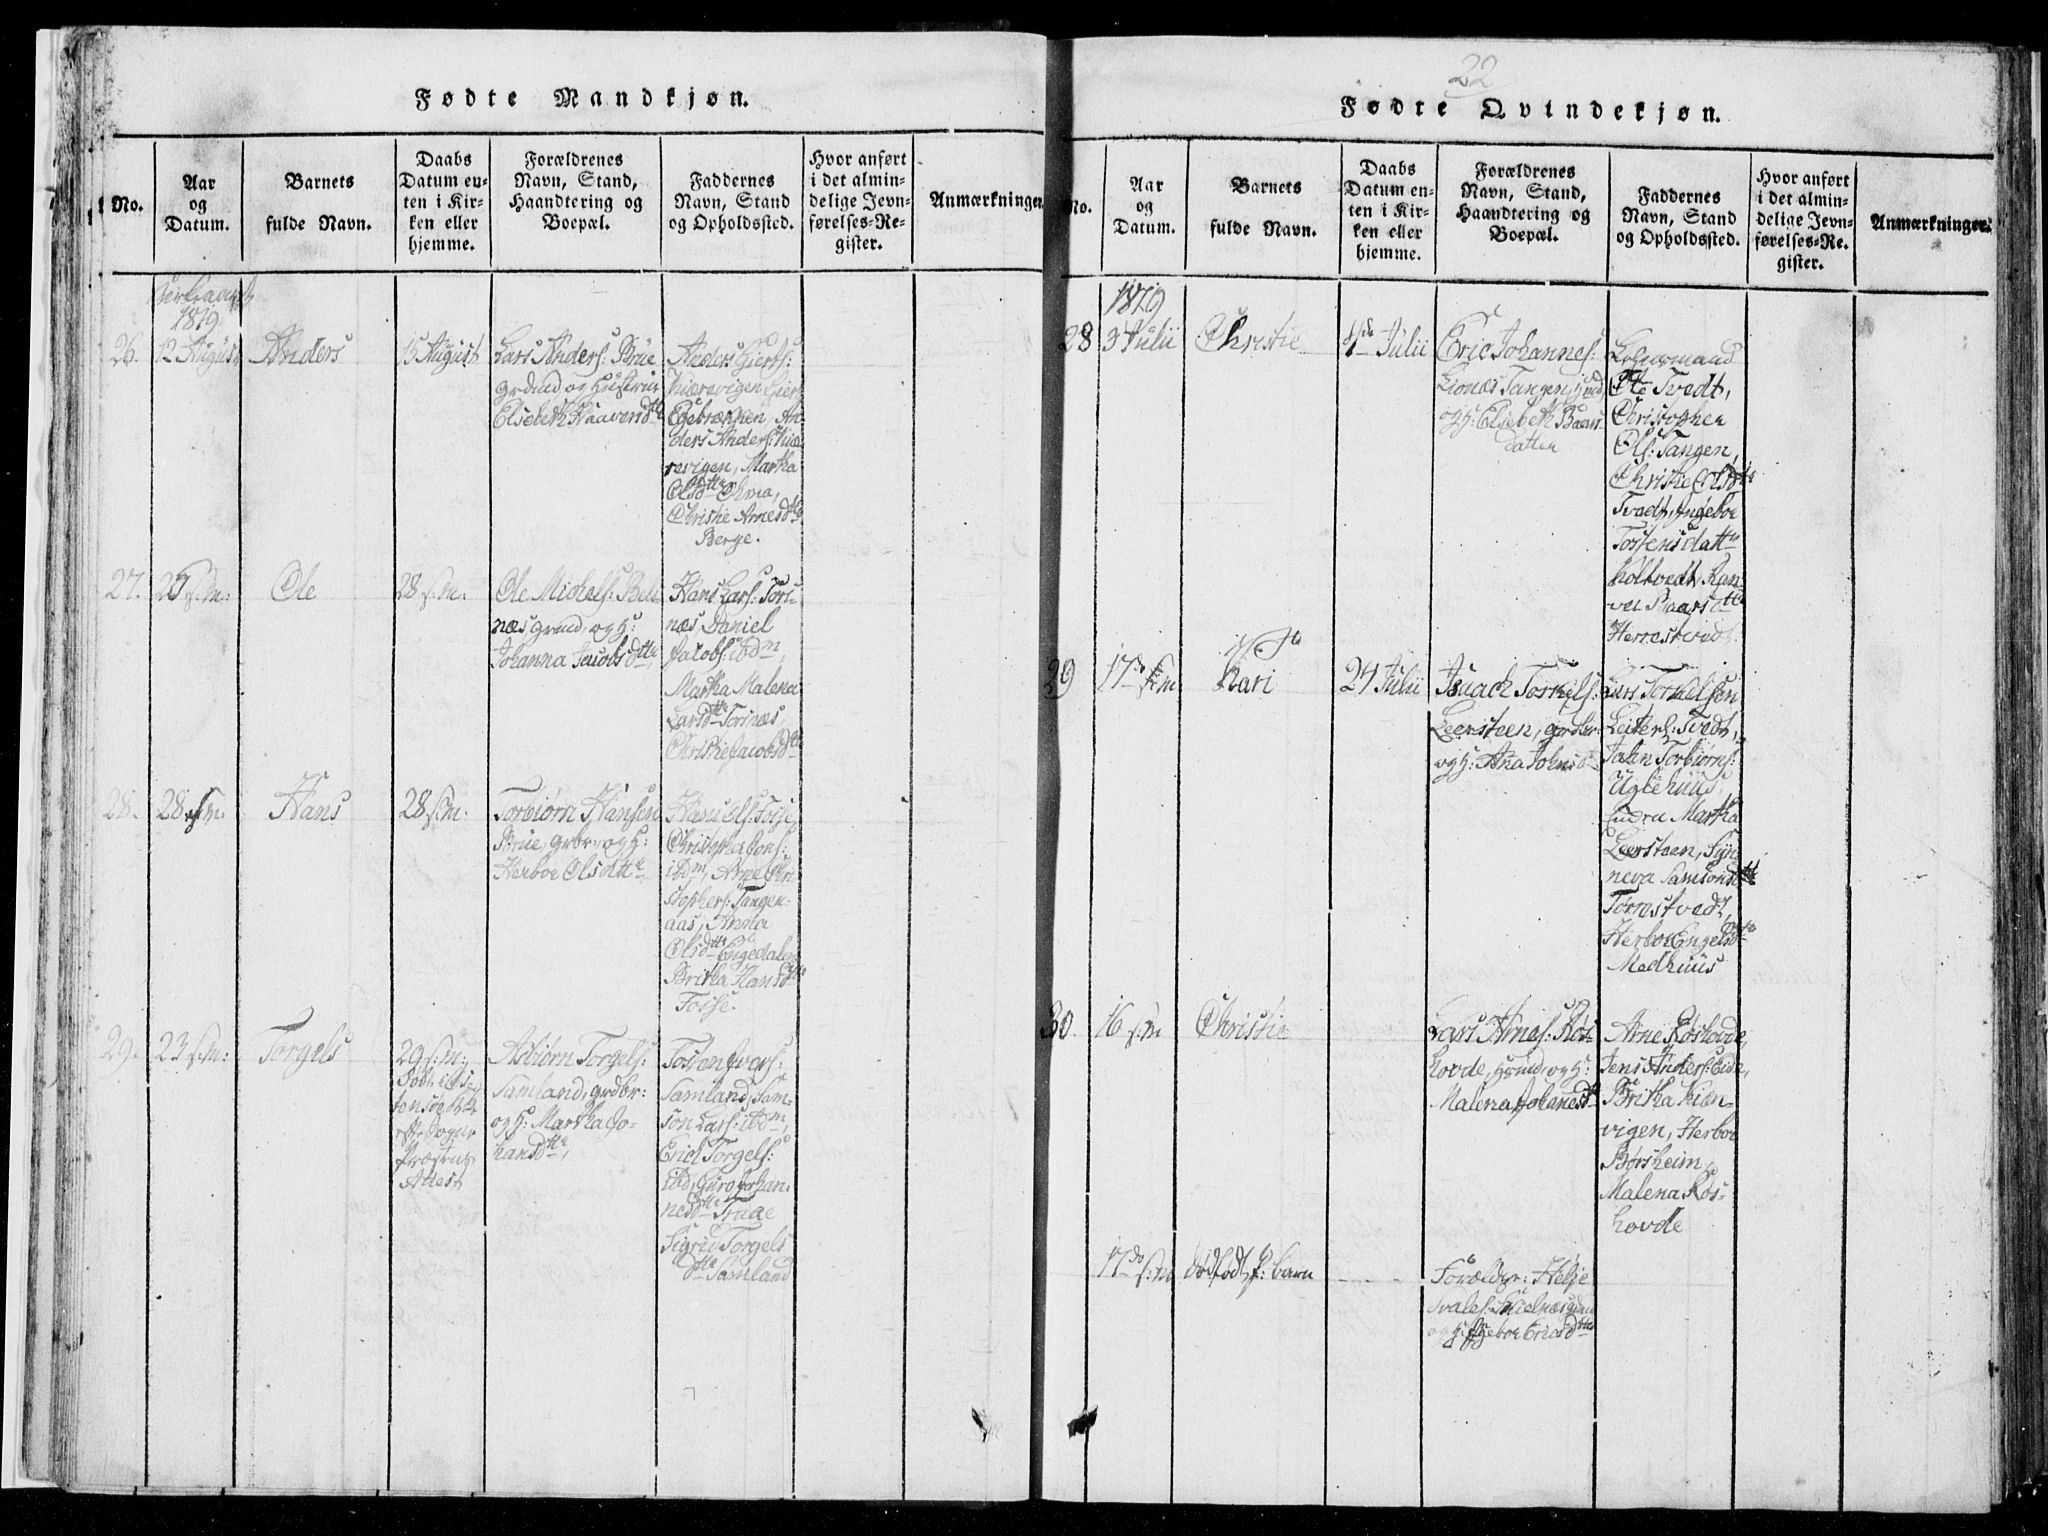 Fødte Mandkjøn.
No.
Aar
og
Datum.
Barnets
fulde Navn.
Daabs
Datum en-
ten i Kir-
ken eller
hjemme.
Forældrenes
Navn, Stand,
Haandtering og
Boepæl.
Faddernes
Navn, Stand
og Opholdssted.
Hvor anført
i det almin-
delige Jevn-
førelses-Re-
gister.
Anmærkninger.
1819
26.
12 August
Anders
15 August
Lars Anders: Brue
grdmd og Hustrue
Elsebeth Haaversdtte
Anders Giers:
Kiærevigen, Gier
Egebrækken, An-
ders Anders: Kiæ
revigen, Martha
Olsdtte Qvia,
Christie Arnesdtte
Berge.
27.
25 s:m:
Ole
28 s:m:
Ole Michels:
næs grmd, og H:
Johanna Jacobsdtte
Hans Lars: Tors-
næs, Daniel
Jacobs: ibdm,
Martha Malena
Larsdtte Torsnæs,
Christie Jacobsdtte
28.
28 s:m:
Hans
28 s:m:
Torbiørn Hansen
Brue, grbr, og H:
Herboe Olsdtte
Hans Ols: Fosse,
ibdm, Arne Chri-
stophers: Tangen-
aas, Anna
Olsdtte Engedalen
Britha Hansdtte
Fosse.
29.
23 s:m:
Torgels
29 s:m:
Attest
Asbiørn Torgels:
Samland, grdbr:
og H: Martha Jo-
hansdtte,
Tosten Ivers:
Samland, Sam-
son Lars: ibdm,
Erich Torgels:
ibd, Guro Johan-
nesdtte Traae
Sigrid Torgels
dtte Samland
22
Fødte Qvindekjøn.
No.
Aar
og
Datum.
Barnets
fulde Navn.
Daabs
Datum en-
ten i Kir-
ken eller
hjemme.
Forældrenes
Navn, Stand,
Haandtering og
Boepæl.
Faddernes
Navn, Stand
og Opholdssted.
Hvor anført
i det almin-
delige Jevn-
førelses-Re-
gister.
Anmærkninger.
1819
28
3 Julii
Christie
4de Julii
Eric Johannes:
Lionæs Tangen,
og H: Elsebeth Baars
datter
Ole Tvedt,
Christopher
Ols: Tangen,
Christie Olsdtte
Tvedt, Ingeboe
Tostensdatter
Holtvedt, Ran-
vei Baarsdtte
Herrestvedt
29
17de s:m
Kari
24 Julii
Isaach Torkels:
Leersteen, grdbr:
og H: Ana Johnsd
Lars Torkelsen,
Leiters: Tvedt,
John Torbiørns:
Uglehuus,
Martha
Leersteen, Syn-
neva Samsonsdtte
Torrestvedt,
Herboe Engelsdtte
Medhuus
30.
16 s:m
Christie
Lars Arnes: Ros-
hovde, grmd, og H:
Malena Johanesd
Arne Roshovde,
Jens Anders: Eide,
Britha Kier-
vigen, Herboe
Børsheim,
Malena Ros-
hovde
17de s:m
dødfødt p: barn
Forældre: Helje
og H: Ingeboe Ericsdtte